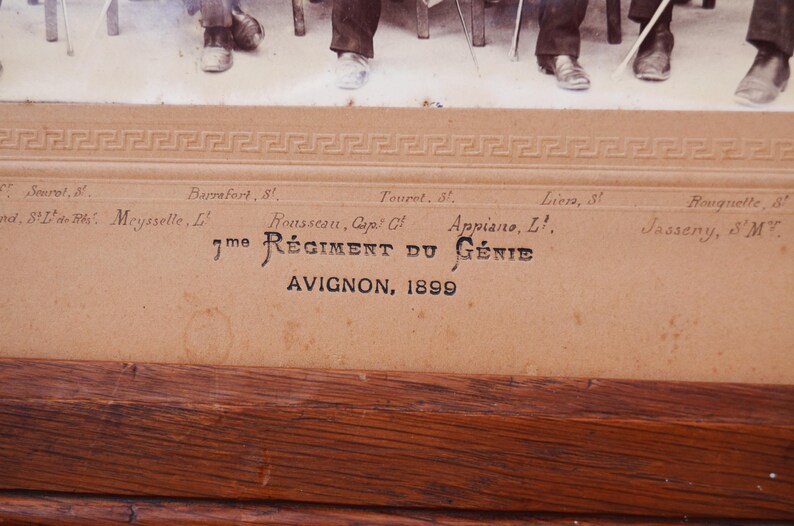 Seurot, St. Barrafort, St. Touret, St. Liens, St Rouquette, St
Meysselle, Lt. Rousseau, Cap.ne Ct Appiano, Lt. Jasseny, St Mor.
7me RÉGIMENT DU GÉNIE
AVIGNON, 1899